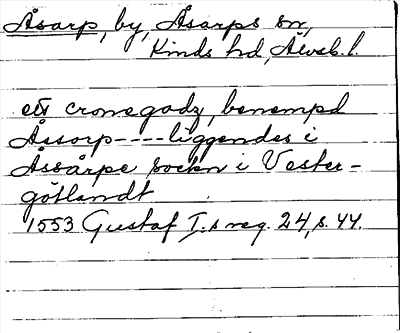 Åsarp, by, Åsarps sn,
Kinds hd, Älvsb. l.
ett cronegodz, benempd
Åssorp----liggendes i
Assårpe sockn i Vester-
götlandt
1553 Gustaf I.s reg. 24, s. 44.